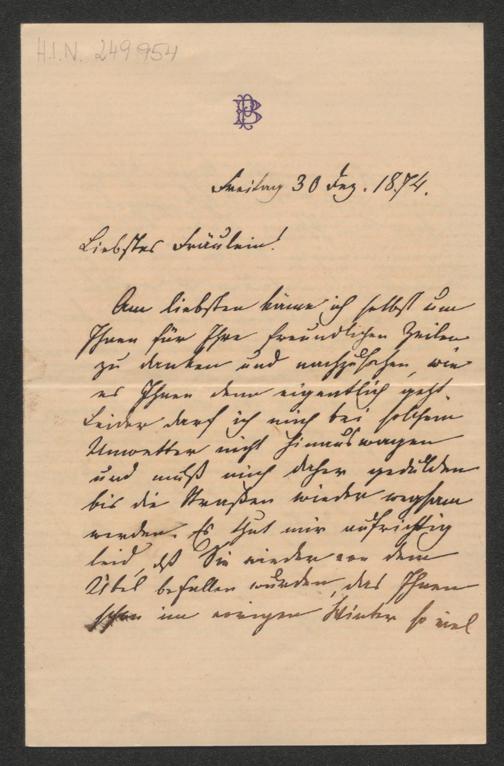 H.I.N. 249954
PB
Freitag 30 Dez. 1874.
Liebstes Fräulein!
Am liebsten käme ich selbst um
Ihnen für Ihre freundlichen Zeilen
zu danken und nachzusehen, wie
es Ihnen denn eigentlich geht.
Leider darf ich mich bei solchem
Unwetter nicht hinauswagen
und muß mich daher gedulden
bis die Straßen wieder wegsam
werden. Es thut mir aufrichtig
leid, daß Sie wieder von dem
Übel befallen wurden, das Ihnen
schon im vorigen Winter so viel